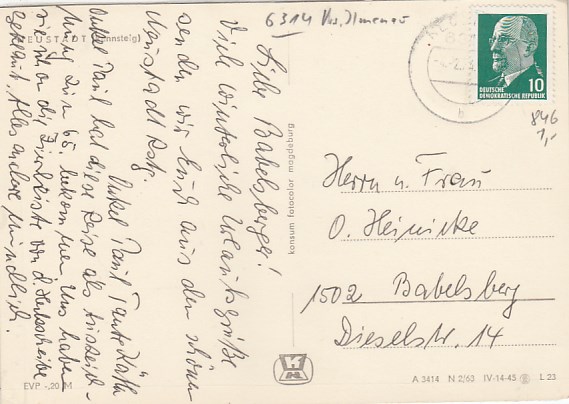 6314 Krs. Ilmenau
NEUSTADT (Rennsteig)
Liebe Babelsberger!
Viele winterliche Urlaubsgrüße
senden wir Euch aus dem schönen
Neustadt Rstg.
Onkel Paul Tante Käth
Onkel Paul hat diese Reise als Auszeich-
nung zum 65. bekommen. Uns haben
sie in an die
geklaut. Alles andere mündlich.
EVP -,20 M
konsum fotocolor magdeburg
10
DEUTSCHE
DEMOKRATISCHE REPUBLIK
846
1,-
Herrn u. Frau
O. Heinicke
1502 Babelsberg
Dieselstr. 14
A 3414 N 2/63 IV-14-45 L 23